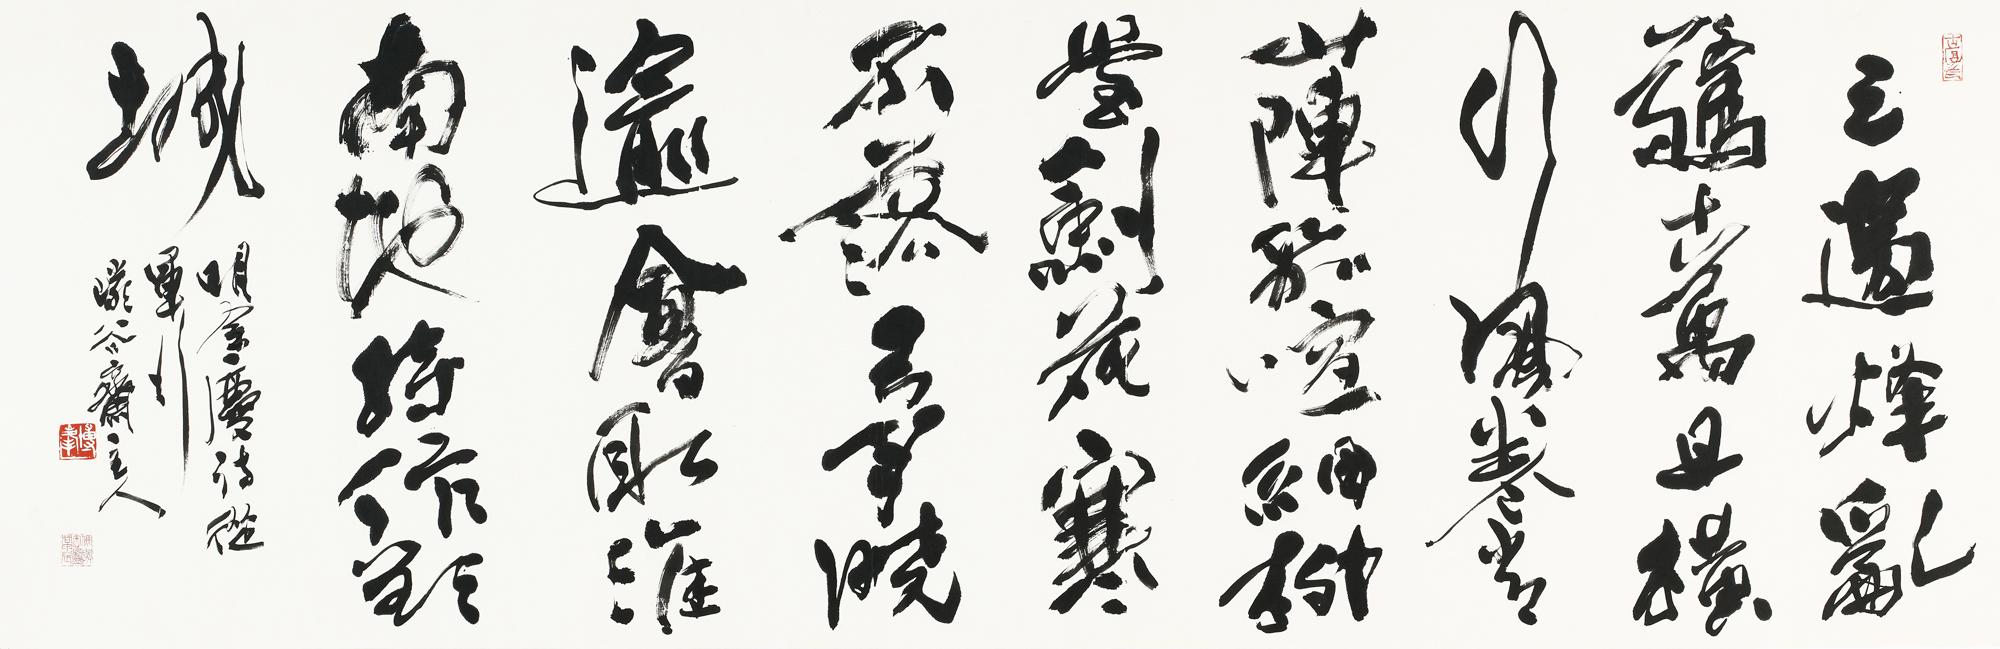 三邊烽亂
驚十萬且橫
行風卷常
山陣笳喧細柳
營劍花寒
不落弓月曉
逾會取淮
南地持作朔
城
明余慶詩從
軍行
谷齋主人